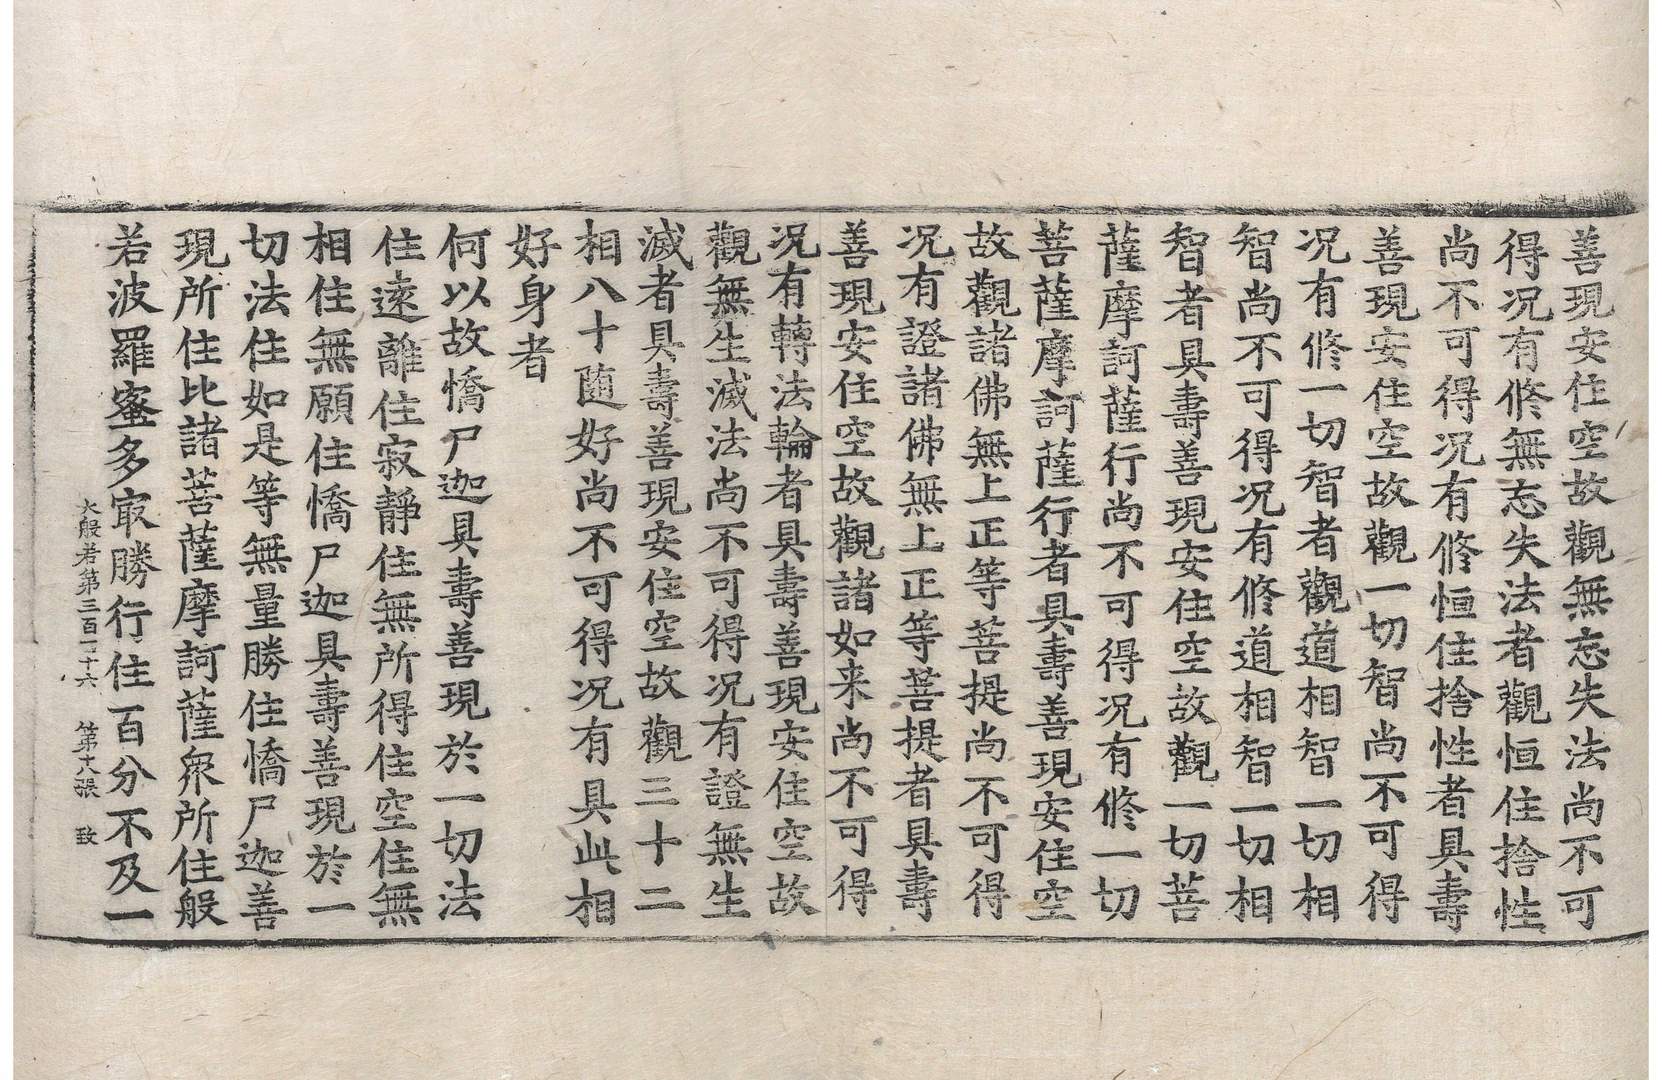 善現安住空故觀無忘失法尚不可
得况有修無忘失法者觀恒住捨性
尚不可得况有修恒住捨性者具壽
善現安住空故觀一切智尚不可得
况有修一切智者觀道相智一切相
智尚不可得况有修道相智一切相
智者具壽善現安住空故觀一切菩
薩摩訶薩行尚不可得况有修一切
菩薩摩訶薩行者具壽善現安住空
故觀諸佛無上正等菩提尚不可得
况有證諸佛無上正等菩提者具壽
善現安住空故觀諸如来尚不可得
况有轉法輪者具壽善現安住空故
觀無生滅法尚不可得况有證無生
滅者具壽善現安住空故觀三十二
相八十随好尚不可得况有具此相
好身者
何以故憍尸迦具壽善現於一切法
住遠離住寂靜住無所得住空住無
相住無願住憍尸迦具壽善現於一
切法住如是等無量勝住憍尸迦善
現所住比諸菩薩摩訶薩衆所住般
若波羅蜜多冣勝行住百分不及一
大般若第三百一十六 第十八張 致